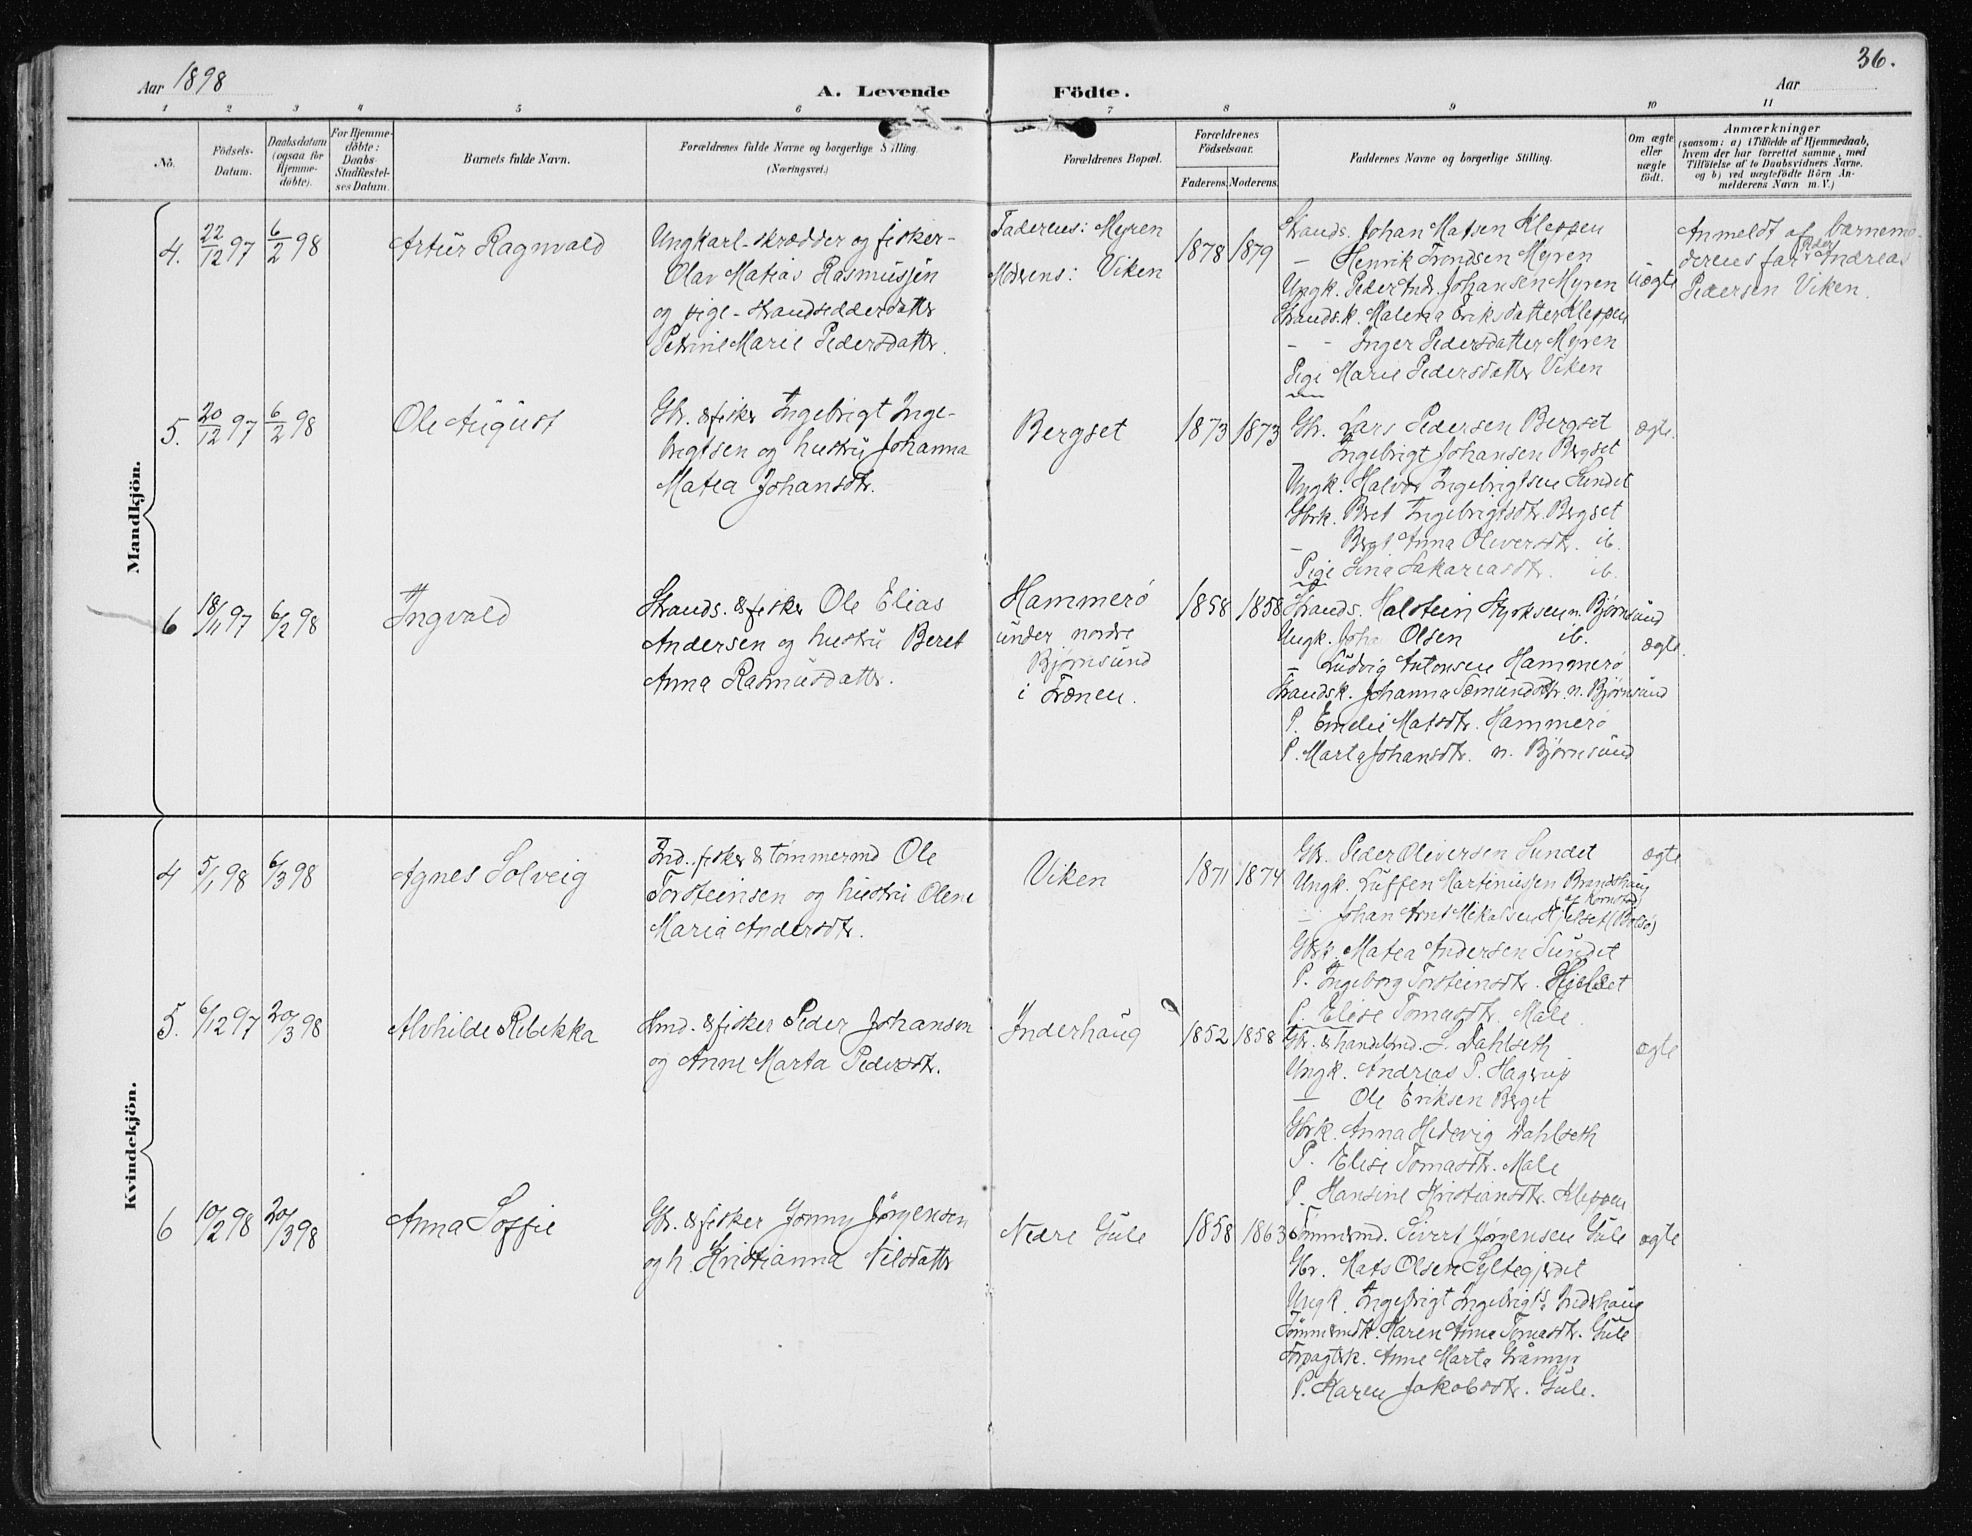 36.
Aar 1898
A. Levende Födte.
Aar
1 2 3 4 5 6 7 8 9 10 11
No.
Födsels-
Datum.
Daabsdatum
(ogsaa for
Hjemme-
döbte).
For Hjemme-
döbte:
Daabs-
Stadfæstel-
ses Datum.
Barnets fulde Navn.
Forældrenes fulde Navne og borgerlige Stilling.
(Næringsvei.)
Forældrenes Bopæl.
Forældrenes
Födselsaar.
Faderens. Moderens.
Faddernes Navne og borgerlige Stilling.
Om ægte
eller
uægte
födt.
Anmærkninger
(saasom: a) i Tilfælde af Hjemmedaab,
hvem der har forrettet samme, med
Tilföielse af to Daabsvidners Navne,
og b) ved uægtefödte Börn An-
melderens Navn m. V.)
Mandkjön.
4. 22/12 97 6/2 98
Artur Ragnvald
Ungkarl-skrædder og fisker-
Olav Matias Rasmussen
og pige-strandsidderdatter
Petrine Marie Pedersdatter.
Faderens: Myren
Moderens: Viken
1878 1879
Strands. Johan Matsen Kleppen
— Henrik Trondsen Myren
Ungk. Peder Andr. Johansen Myren
Strandsk. Malena Eriksdatter Kleppen
- - Inger Pedersdatter Myren
Pige Marie Pedersdatter Viken
uægte
Anmeldt af barnemo-
derens far Peder Andreas
Pedersen Viken.
5. 20/12 97 6/2 98
Ole August
Gbr. & fisker Ingebrigt Inge-
brigtsen og hustru Johanna
Matea Johansdtr.
Bergset
1873 1873
Gbr. Lars Pedersen Bergset
— Ingebrigt Johansen Bergset
Ungk. Halvor Ingebrigtsen Sundet
Gbrk. Beret Ingebrigtsdtr. Bergset
— Bergt Anna Oliversdtr. ib.
Pige Lina Sakariasdtr. ib.
ægte.
6 18/11 97 6/2 98
Ingvald
Strands. & fisker Ole Elias
Andersen og hustru Beret
Anna Rasmusdatter.
Hammerö
under nordre
Björnsund
i Frænen.
1858 1858
Strands. Halstein Styrksen n. Björnsund
Ungk. Joh Olsen ib.
— Ludvig Antonsen Hammerö
Strandsk. Johanna Sæmundsdtr. n. Björnsund
P. Emelie Matsdtr. Hammerö
P. Marta Johansdtr. n. Björnsund
ægte.
Kvindekjön.
4 5/1 98 6/3 98
Agnes Solveig
Ind. fisker & tömmermd Ole
Torsteinsen og hustru Olene
Maria Andersdtr.
Viken
1871 1874
Gbr. Peder Oliversen Sundet
Ungk. Luffen Martinussen Brandshaug
(af Kornstad)
— Johan Arnt Mikalsen Hjelset (Bolsö)
Gbrk. Matea Andersen Sundet
P. Ingeborg Torsteinsdtr. Hjelset
P. Elise Tomasdtr. Male
ægte
5. 6/12 97 20/3 98
Alvhilde Rebekka
Hmd. & fisker Peder Johansen
og Anne Marta Pedersdtr.
Inderhaug
1852 1858
Gbr. & handelsmd. L. Dahlseth
Ungk. Andreas P. Hagerup
— Ole Eriksen Berget
Gbrk. Anna Hedevig Dahlseth
P. Elise Tomasdtr. Male
P. Hansine Kristiansdtr. Kleppen
ægte
6 10/2 98 20/3 98
Anna Soffie
Gbr. & fisker Jonny Jörgensen
og h. Kristianna Nilsdatter
Nedre Gule
1858 1863
Tömmermd. Sivert Jörgensen Gule
Gbr. Mats Olsen Syltegjerdet
Ungk. Ingebrigt Ingebrigts. Inderhaug
Tömmermdk. Karen Anna Tomasdtr. Gule
Forpagterk. Anne Marta Gramyr
P. Karen Jakobsdtr. Gule.
ægte